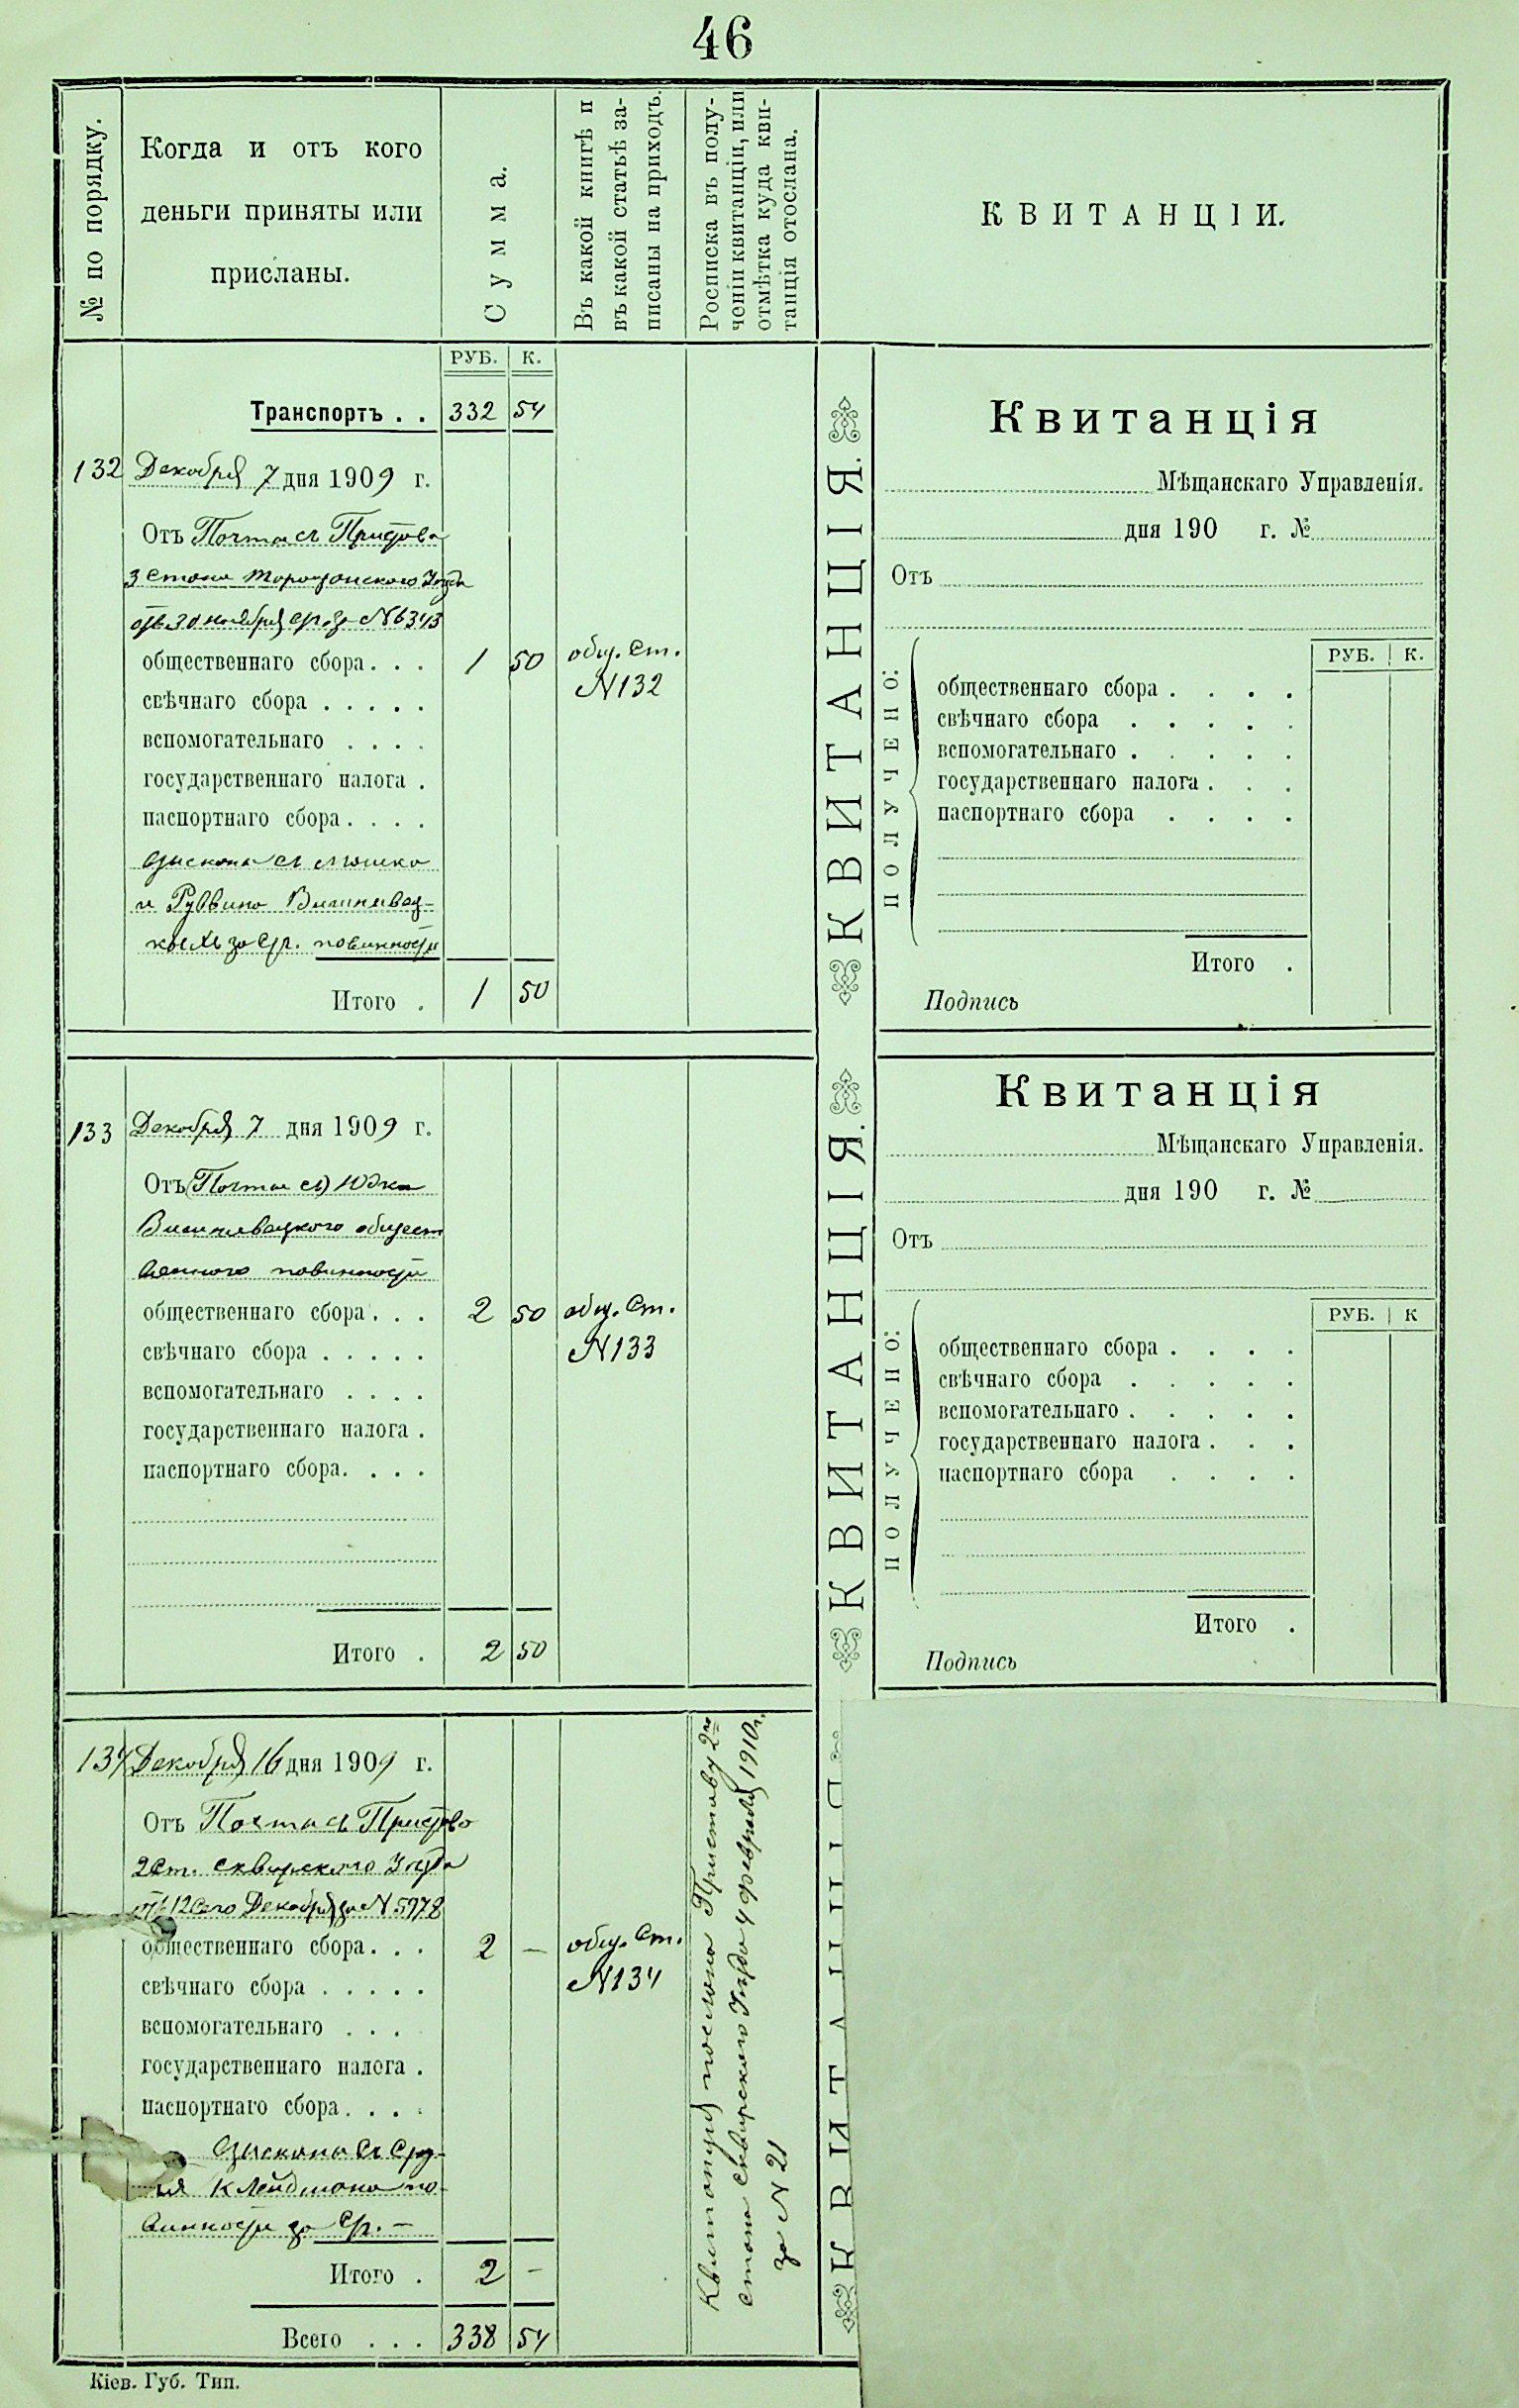 46
№ по порядку.
Когда и отъ кого
деньги приняты или
присланы.
Сумма.
Въ какой книгѣ и
въ какой статьѣ за-
писаны на приходъ.
Росписка въ полу-
ченіи квитанціи, или
отмѣтка куда кви-
танція отослана.
КВИТАНЦІИ.
РУБ. К.
Транспортъ . . 332 54
132 Декабря 7 дня 1909 г.
Отъ Почта съ Пристава
3 стана Таращанского Уезда
30 ноября за N 6343
общественнаго сбора . . . 1 50 общ. ст.
N 132
свѣчнаго сбора . . . . .
вспомогательнаго . . . .
государственнаго налога .
паспортнаго сбора . . . .
и Рувина Вишневец-
кихъ за повинности
Итого . 1 50
133 Декабря 7 дня 1909 г.
Отъ Почта Юдка
Вишневецкого общест
венного повинности
общественнаго сбора . . . 2 50 общ. ст.
N 133
свѣчнаго сбора . . . . .
вспомогательнаго . . . .
государственнаго налога .
паспортнаго сбора. . . .
Итого . 2 50
134 Декабря 16 дня 1909 г.
Отъ Почта съ Пристава
2 ст. Сквирского Уезда
12 сего Декабря за N 5978
общественнаго сбора . . . 2 — общ. ст.
N 134
свѣчнаго сбора . . . . .
вспомогательнаго . . .
государственнаго налога .
паспортнаго сбора . . . .
Клейдмана по-
винности за
Итого . 2 —
Всего . . . 338 54
Кіев. Губ. Тип.
Квитанция послана Приставу 2го
стана Сквирского Уезда 4 февраля 1910 г.
за N 21
КВИТАНЦІЯ.
Квитанція
Мѣщанскаго Управленія.
дня 190 г. №
Отъ
РУБ. К.
ПОЛУЧЕНО:
общественнаго сбора . . . .
свѣчнаго сбора . . . . .
вспомогательнаго . . . . .
государственнаго налога . . .
паспортнаго сбора . . . .
Итого .
Подпись
КВИТАНЦІЯ.
Квитанція
Мѣщанскаго Управленія.
дня 190 г. №
Отъ
РУБ. К
ПОЛУЧЕНО:
общественнаго сбора . . . .
свѣчнаго сбора . . . . .
вспомогательнаго . . . . .
государственнаго налога . . .
паспортнаго сбора . . . .
Итого .
Подпись